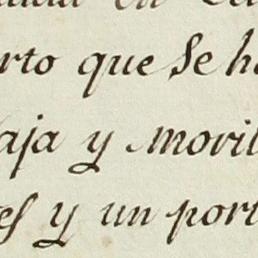 rto que Se h
aja y movil
es y un port